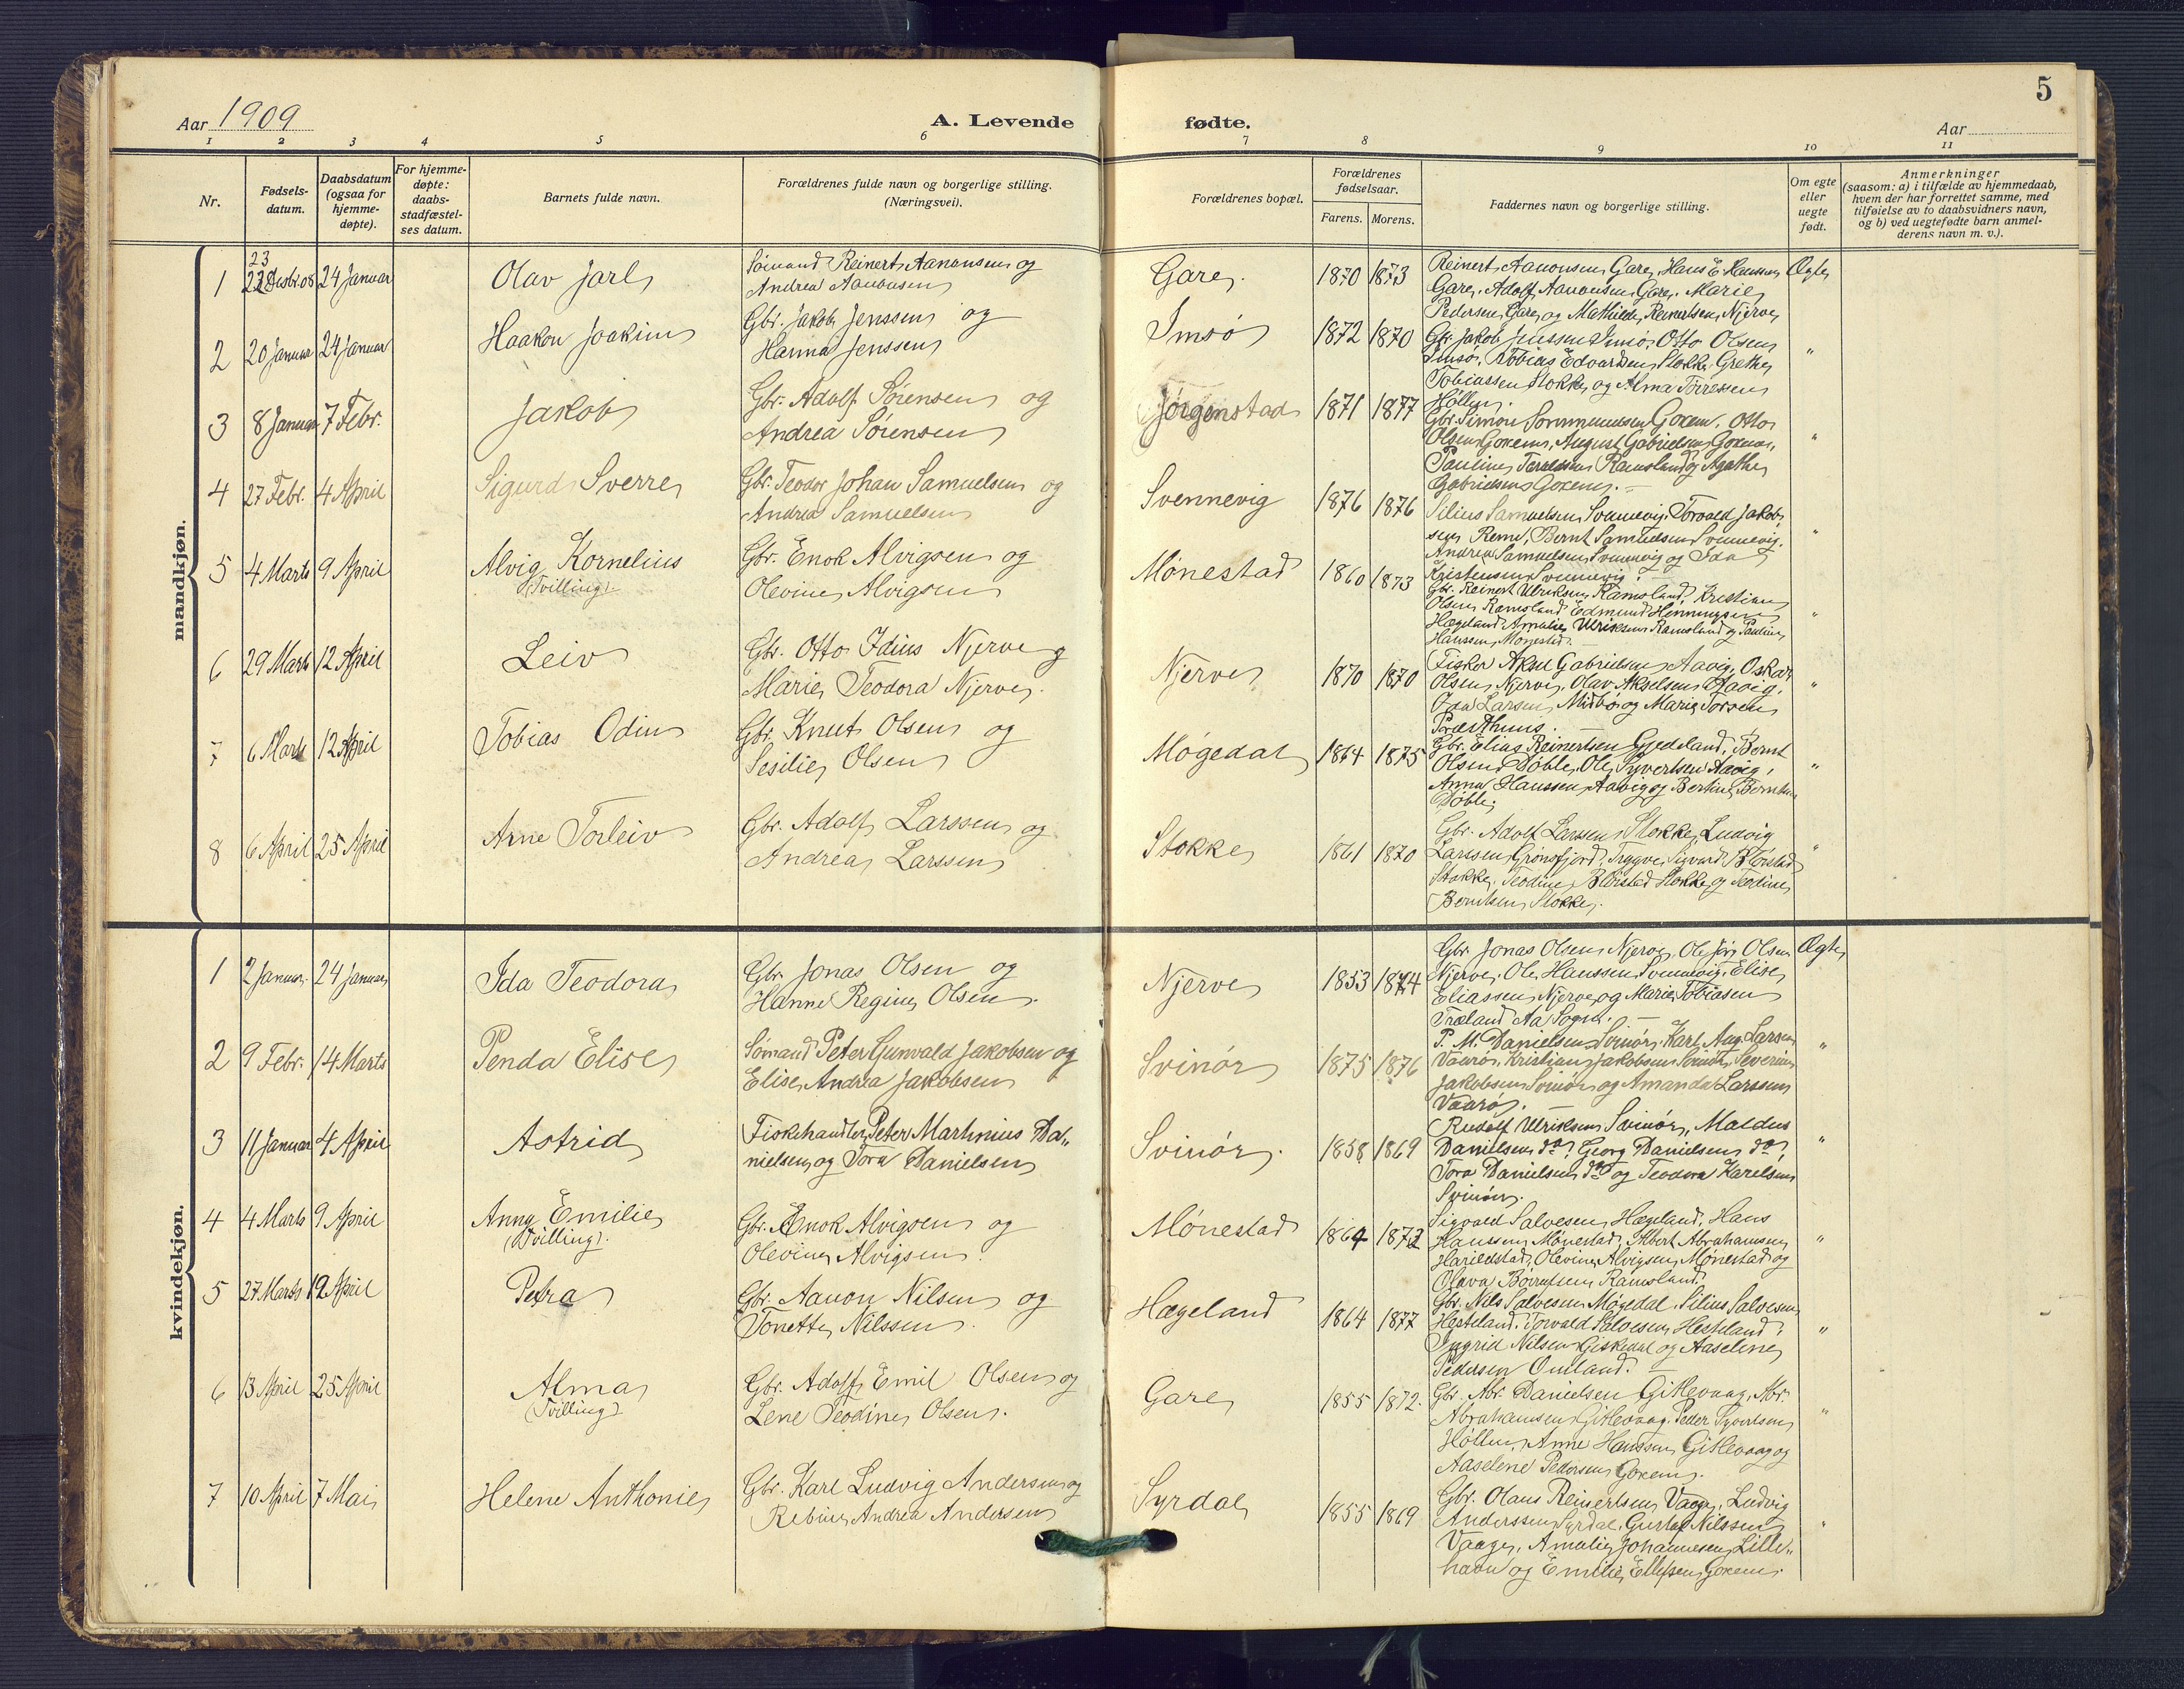 5
Aar 1909
A. Levende
fødte.
Aar
1 2 3 4 5 6 7 8 9 10 11
Nr.
Fødsels-
datum.
Daabsdatum
(ogsaa for
hjemme-
døpte).
For hjemme-
døpte:
daabs-
stadfæstel-
ses datum.
Barnets fulde navn.
Forældrenes fulde navn og borgerlige stilling.
(Næringsvei).
Forældrenes bopæl.
Forældrenes
fødselsaar.
Farens. Morens.
Faddernes navn og borgerlige stilling.
Om egte
eller
uegte
født.
Anmerkninger
(saasom: a) i tilfælde av hjemmedaab,
hvem der har forrettet samme, med
tilføielse av to daabsvidners navn,
og b) ved uegtefødte barn anmel-
derens navn m. v.).
mandkjøn.
1 23 Desbr. 08 24 Januar Olav Jarl
Sømand Reinert Aanonsen og
Andrea Aanonsen
Gare. 1870 1873
Reinert Aanonsen Gare, Hans E. Hanssen
Gare, Adolf Aanonsen Gare, Marie
Pedersen Gare og Mathilde Reinertsen Njerve
Ægte
2 20 Januar 24 Januar Haakon Joakim
Gbr. Jakob Jenssen og
Hanna Jenssen
Imsø 1872 1870
Gbr. Jakob Jenssen Imsø, Otto Olsen
Imsø, Tobias Edvardsen Stokke, Grethe
Tobiassen Stokke og Alma Torressen
Høllen.
"
3 8 Januar 7 Febr. Jakob
Gbr. Adolf Sørensen og
Andrea Sørensen
Jørgenstad 1871 1877
Gbr. Simon Sommundsen Goxem, Otto
Olsen Goxem, August Gabrielsen Goxem,
Pauline Ramsland og Agathe
Gabrielsen Goxem.
"
4 27 Febr. 4 April Sigurd Sverre
Gbr. Teodor Johan Samuelsen og
Andrea Samuelsen
Svennevig 1876 1876
Silius Samuelsen Svennevig, Torvald Jakob-
sen Reme, Bernt Samuelsen Svennevig,
Andrea Samuelsen Svennevig og Ida
Kristensen Svennevig.
"
5 4 Marts 9 April Alvig Kornelius
(Tvilling)
Gbr. Enok Alvigsen og
Olevine Alvigsen
Mønestad 1860 1873
Gbr. Reinert Ulriksen Ramsland, Kristian
Olsen Ramsland, Edmund Henningsen
Hægeland, Amalie Ulriksen Ramsland og Pauline
Hanssen Mønestad.
"
6 29 Marts 12 April Leiv
Gbr. Otto Idius Njerve og
Marie Teodora Njerve.
Njerve 1870 1870
Fisker Aksel Gabrielsen Aavig, Oskar
Olsen Njerve, Olav Akselsen Aavig,
Larsen Midbø og Marie Torsen
Præsthuus.
"
7 6 Marts 12 April Tobias Odin
Gbr. Knut Olsen og
Sesilie Olsen
Møgedal 1864 1875
Gbr. Elias Reinertsen Gjedeland, Bernt
Olsen Døble, Ole Syvertsen Aavig,
Anna Hanssen Aavig og Bertine Berntsen
Døble.
"
8 6 April 25 April Arne Torleiv
Gbr. Adolf Larssen og
Andrea Larssen
Stokke 1861 1870
Gbr. Adolf Larssen Stokke, Ludvig
Larssen Grønsfjord, Trygve Sigvard Blørstad
Stokke, Teodine Blørstad Stokke og Teodine
Berntsen Stokke.
"
kvindekjøn.
1 2 Januar 24 Januar Ida Teodora
Gbr. Jonas Olsen og
Hanne Regine Olsen.
Njerve 1853 1864
Gbr. Jonas Olsen Njerve, Ole Jørg. Olsen
Njerve, Ole Hanssen Svennevig, Elise
Eliassen Njerve og Marie Tobiasen
Træland Aa Sogn.
Ægte
2 9 Febr. 14 Marts Penda Elise
Sømand Peter Gunvald Jakobsen og
Elise Andrea Jakobsen
Svinør 1875 1876
P. M. Danielsen Svinør, Karl Aug. Larsen
Vaarø, Kristian Jakobsen Svinør, Severine
Jakobsen Svinør og Amanda Larssen
Vaarø.
"
3 11 Januar 4 April Astrid
Fiskehandler Peter Martinius Da-
nielsen og Tora Danielsen
Svinør 1858 1869
Rudolf Ulriksen Svinør, Maldus
Danielsen do, Georg Danielsen do,
Tora Danielsen do og Teodora Karelsen
Svinør.
"
4 4 Marts 9 April Anna Emilie
(Tvilling).
Gbr. Enok Alvigsen og
Olevine Alvigsen.
Mønestad 1864 1873
Sigvald Salvesen Hægeland, Hans
Hanssen Mønestad, Albert Abrahamsen
Harildstad, Olevine Alvigsen Mønestad og
Olava Ramsland.
"
5 27 Marts 12 April Petra
Gbr. Aanon Nilsen og
Tonette Nilssen.
Hægeland 1864 1877
Gbr. Nils Salvesen Møgedal, Silius Salvesen
Hesteland, Torvald Salvesen Hesteland,
Ingrid Nilsen Giskedal og Aaselene
Pedersen Omland.
"
6 13 April 25 April Alma
(Tvilling)
Gbr. Adolf Emil Olsen og
Lene Teodine Olsen.
Gare 1855 1872.
Gbr. Abr. Danielsen Gitlevaag, Abr.
Abrahamsen Gitlevaag, Peder Syvertsen
Høllen, Anne Hanssen Gitlevaag og
Aaselene Pedersen Goxem.
"
7 10 April 7 Mai Helene Anthonie
Gbr. Karl Ludvig Andersen og
Rebine Andrea Andersen
Syrdal 1855 1869
Gbr. Olaus Reinertsen Vaage, Ludvig
Anderssen Syrdal, Gustaf Nilssen
Vaage, Amalie Johannesen Lille-
havn og Emilie Ellefsen Goxem.
"